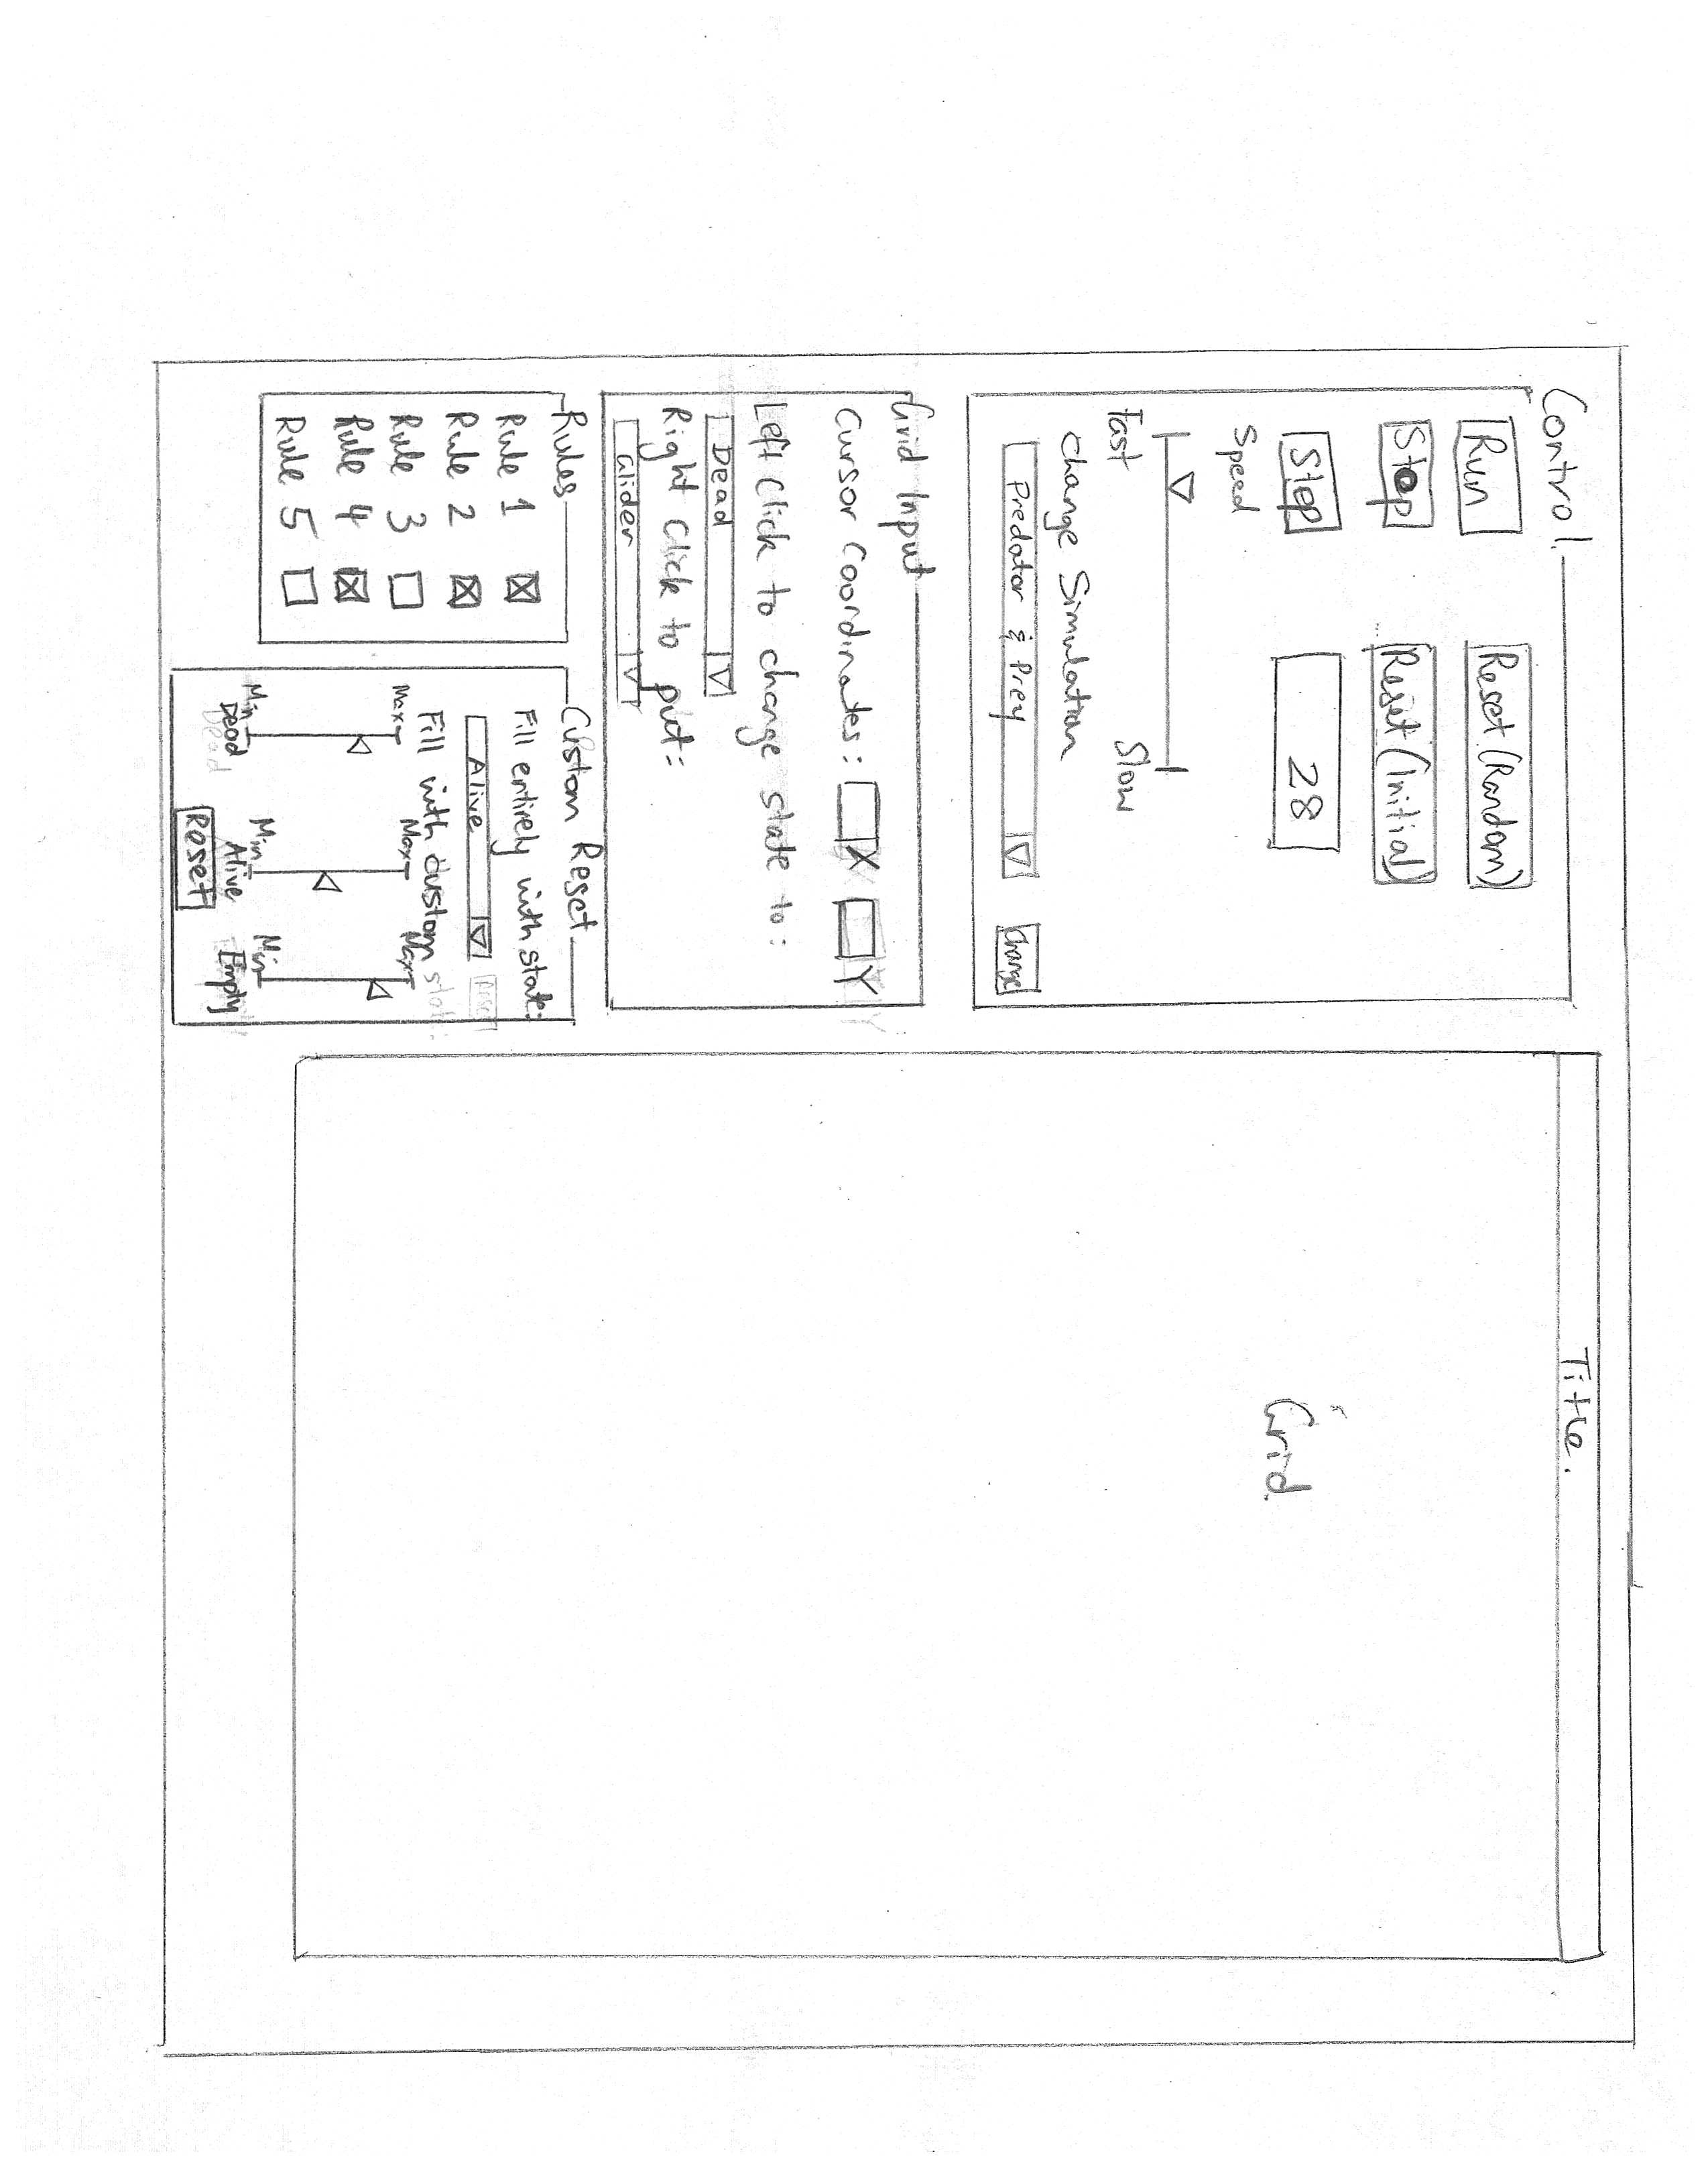 Control
Run
Reset (Random)
Stop
Reset (Initial)
Step
28
Speed
Fast
Slow
Change Simulation
Predator & Prey
Change
Grid Input
Cursor Coordinates: X Y
Left Click to change state to:
Dead
Right Click to put:
Glider
Rules
Rule 1
Rule 2
Rule 3
Rule 4
Rule 5
Custom Reset
Fill entirely with state:
Alive
Fill with custom state:
Max
Max
Max
Min
Min
Min
Dead
Alive
Empty
Reset
Title.
Grid.